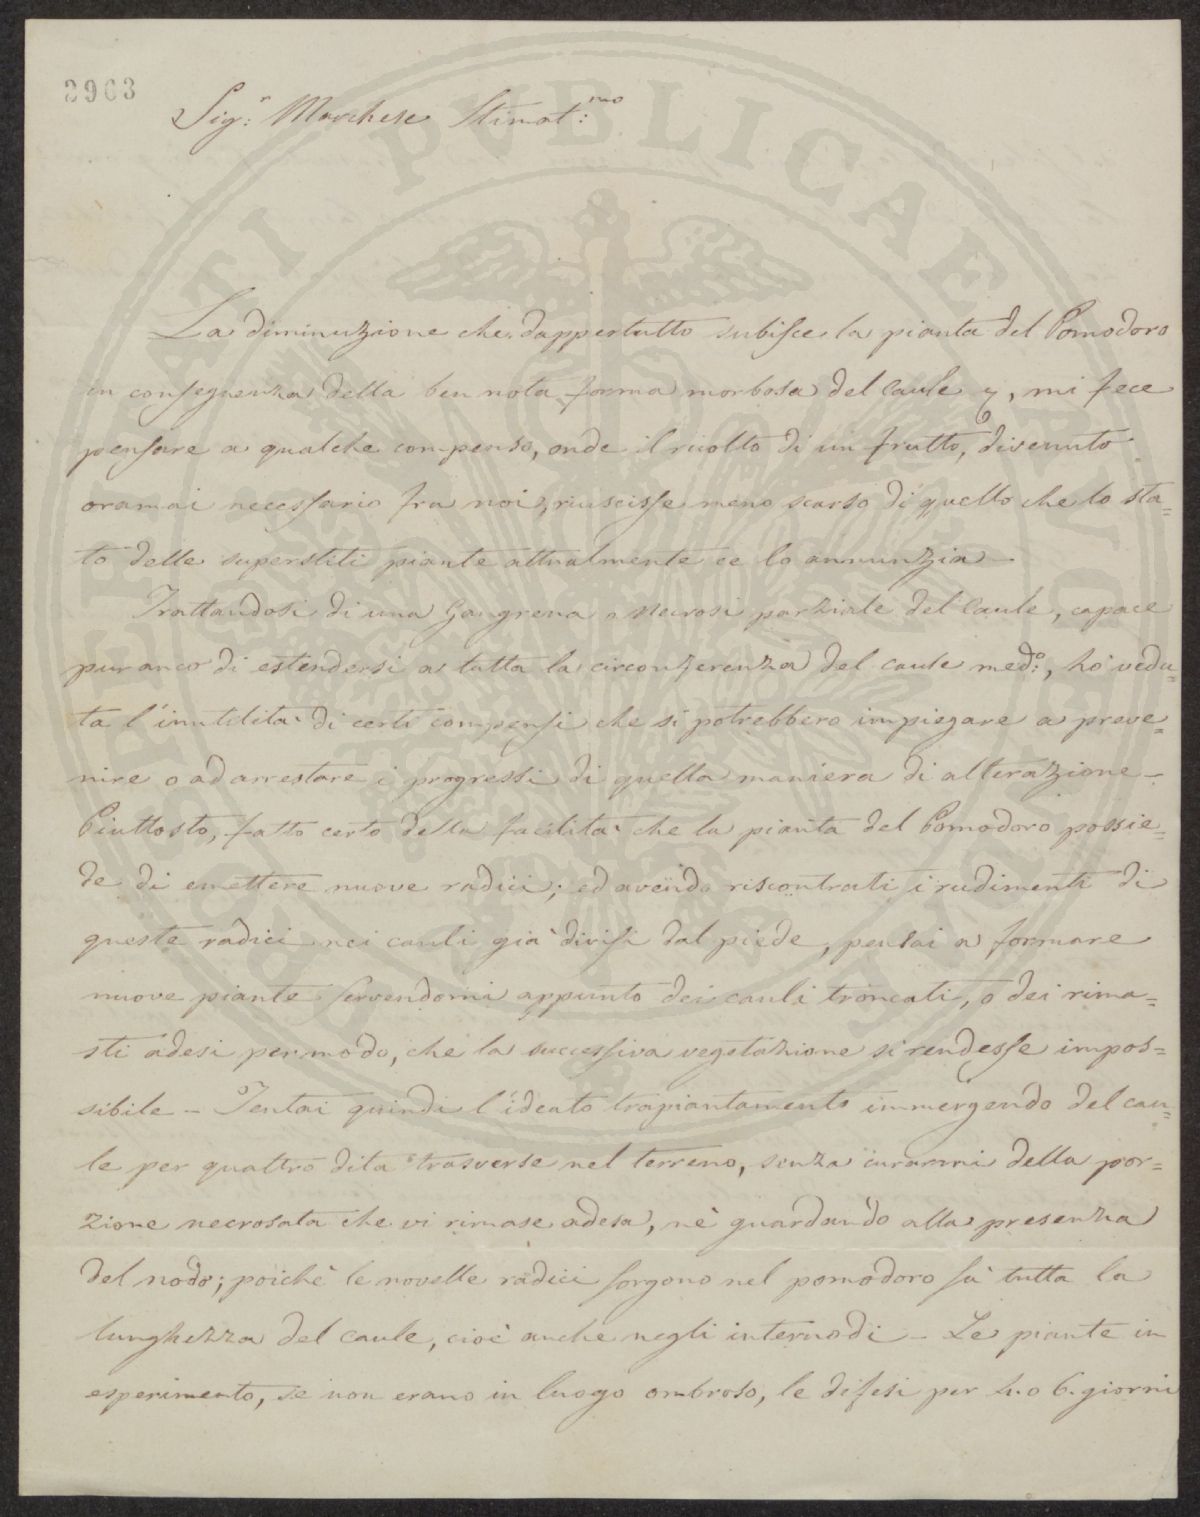 3963
Sig.r Marchese Stimat.mo
La diminuzione che dappertutto subisce la pianta del Pomodoro
in conseguenza della ben nota forma morbosa del Caule, mi fece
pensare a qualche compenso, onde il ricolto di un frutto, divenuto
oramai necessario fra noi, riuscisse meno scarso di quello che lo sta=
to delle superstiti piante attualmente ce lo annunzia –
Trattandosi di una Gangrena o Necrosi parziale del Caule, capace
pur anco di estendersi a tutta la circonferenza del caule med.o, hò vedu=
ta l'inutilità di certi compensi che si potrebbero impiegare a preve=
nire o ad arrestare i progressi di quella maniera di alterazione –
Piuttosto, fatto certo della facilità che la pianta del Pomodoro possie=
de di emettere nuove radici; ed avendo riscontrati i rudimenti di
queste radici nei cauli già divisi dal piede, pensai a formare
nuove piante servendomi appunto dei cauli troncati, o dei rima=
sti adesi per modo, che la successiva vegetazione si rendesse impos=
sibile – Tentai quindi l'ideato trapiantamento immergendo del cau=
le per quattro dita trasverse nel terreno, senza curarmi della por=
zione necrosata che vi rimase adesa, nè guardando alla presenza
del nodo; poichè le novelle radici sorgono nel pomodoro sù tutta la
lunghezza del caule, cioè anche negli internodi – Le piante in
esperimento, se non erano in luogo ombroso, le difesi per 4. o 6. giorni